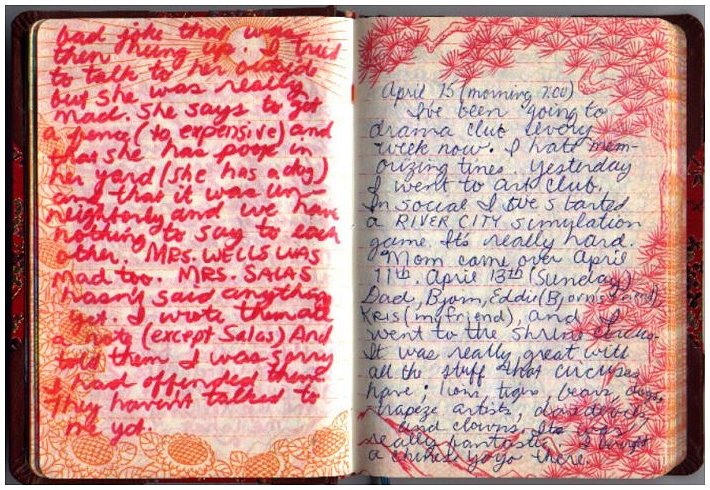 bad joke that was
then hung up. I tried
to talk to her outside
but she was really
mad. She says to get
a fence (to expensive) and
that she has poop in
her yard (she has a dog)
and that it was un-
neighborly and we have
nothing to say to each
other. MRS. WELLS WAS
mad too. MRS. SALAS
hasn't said anything
yet. I wrote them all
a note (except Salas) And
told them I was sorry
I had offended them.
They haven't talked to
me yet.
April 15 (morning 7:00)
I've been going to
drama club every
week now. I hate mem-
orizing lines. Yesterday
I went to art club.
In social I I've started
a RIVER CITY simylation
game. It's really hard.
Mom came over April
11th. April 13th (Sunday)
Dad, Bjorn, Eddie (Bjorn's friend),
KRIS (my friend), and I
went to the shrine circus.
It was really great will
all the stuff that circuses
have; lions, tigers, bears, dogs,
trapeze artists, daredevils
and clowns. It was
really fantastic. I bought
a chinese yoyo there.